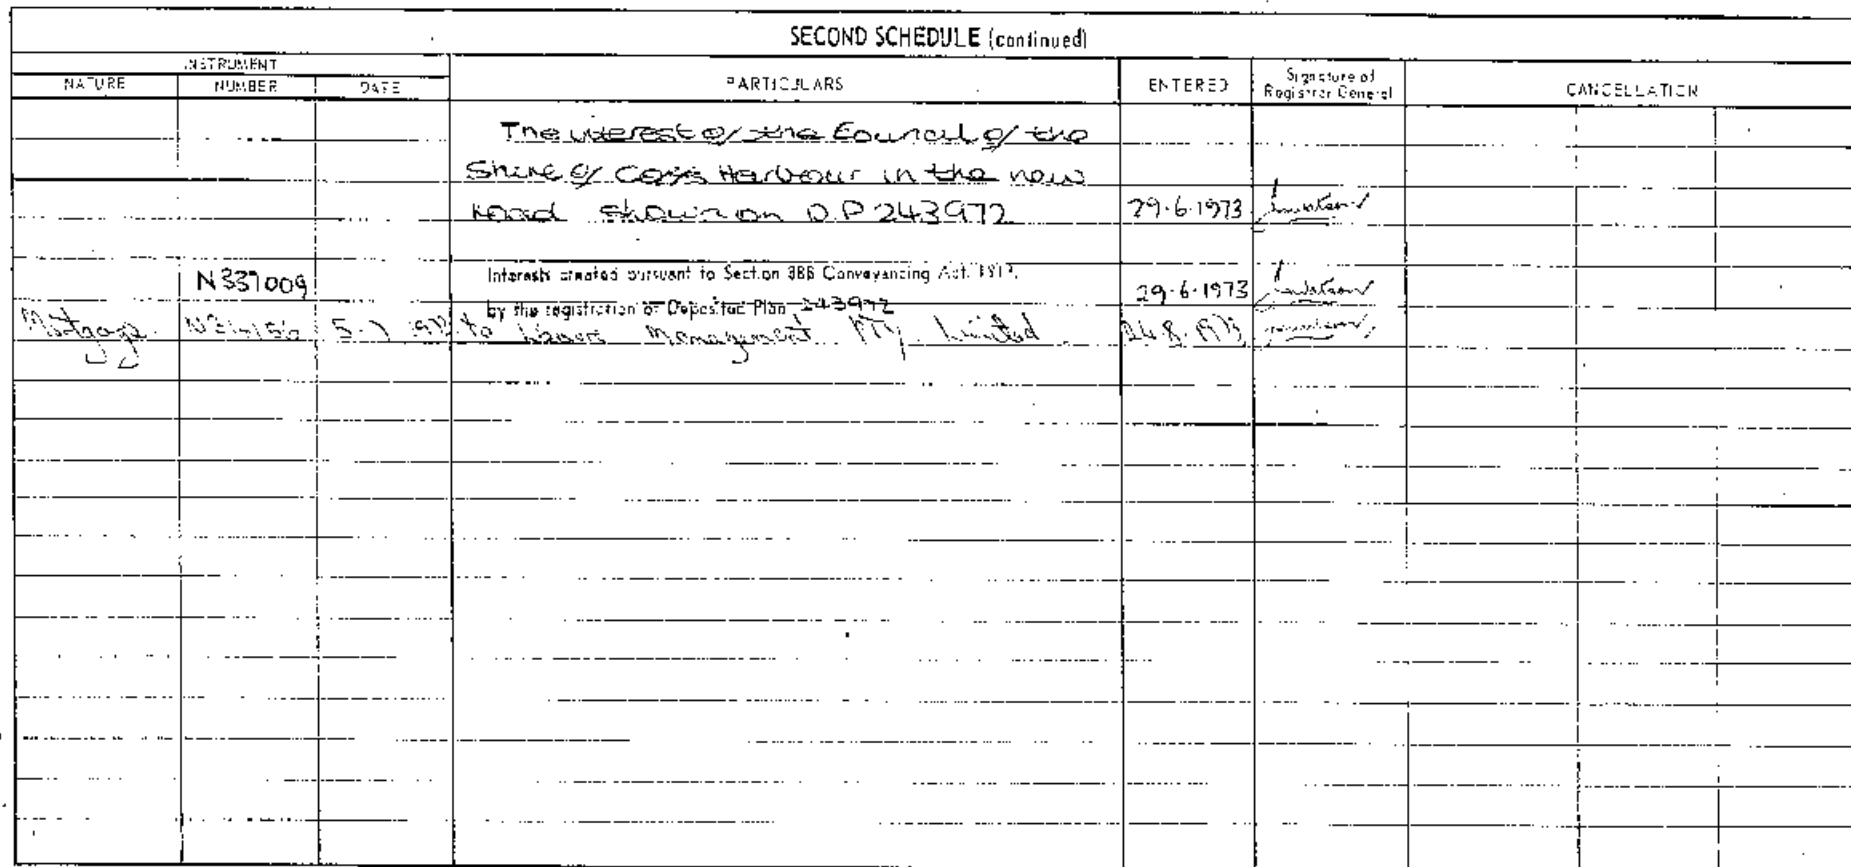 SECOND SCHEDULE (continued)
INSTRUMENT
NATURE NUMBER DATE PARTICULARS ENTERED Signature of Registrar General CANCELLATION
The interest of the Council of the
Shire of Coffs Harbour in the new
Road shown on D.P 243972 29.6.1973
N337009 Interests created pursuant to Section 88B Conveyancing Act, 1919, 29.6.1973
by the registration of Deposited Plan 243972
Mortgage 5-7 1973 to Management Pty Limited 24.8.1973